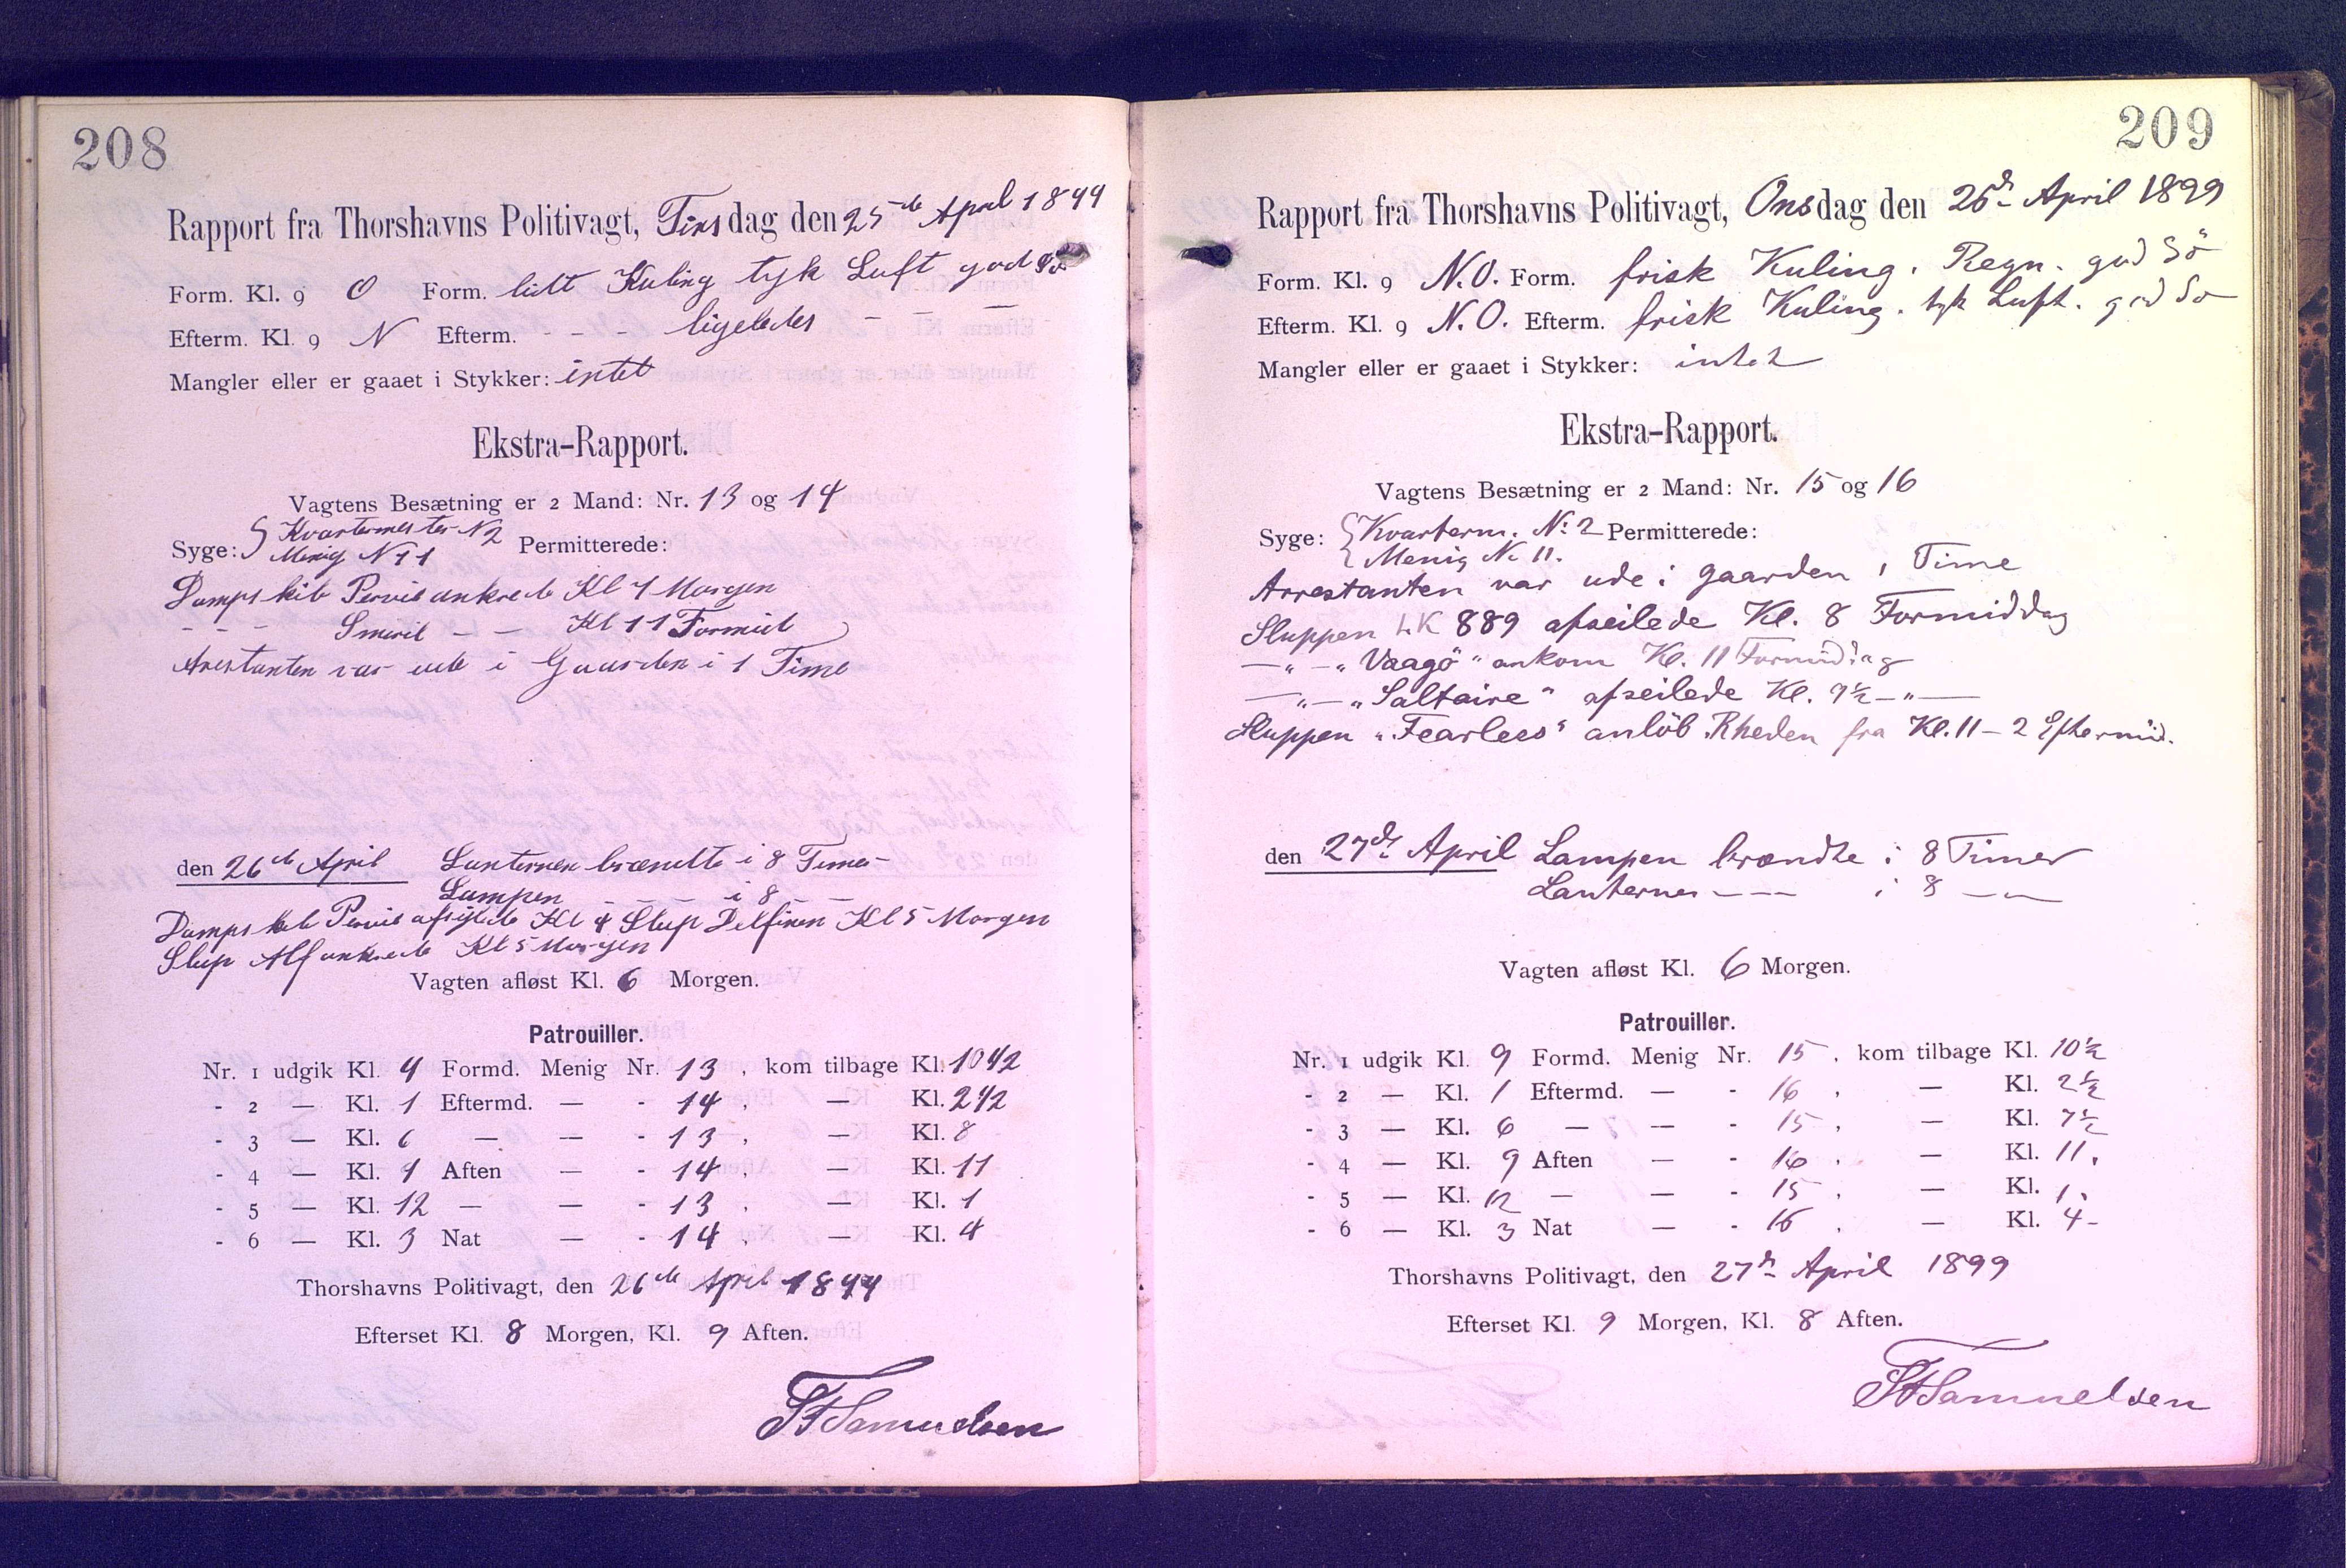 208
Rapport fra Thorshavns Politivagt, Tirsdag den 25de April 1899
Form. Kl. 9 O Form. lidt Kuling tyk Luft god Sø
Efterm. Kl. 9 N Efterm. - - - ligeledes - - -
Mangler eller er gaaet i Stykker: intet
Ekstra-Rapport.
Vagtens Besætning er 2 Mand: Nr. 13 og 14
Syge: { Kvartermester N 2 Permitterede:
Menig N 11
Dampskib Pervie ankrede Kl 4 Morgen
- - - Smiril - - Kl 11 Formid
Arestanten var ude i Gaarden i 1 Time
den 26de April Lanternen brændte i 8 Timer
Lampen - - i 8 -
Dampskib Pervie afsejlede Kl 4 Slup Delfinen Kl 5 Morgen
Slup Alf ankrede Kl 5 Morgen
Vagten afløst Kl. 6 Morgen.
Patrouiller.
Nr. 1 udgik Kl. 9 Formd. Menig Nr. 13, kom tilbage Kl. 10 1/2
- 2 — Kl. 1 Eftermd. — - 14, — Kl. 2 1/2
- 3 — Kl. 6 — — - 13, — Kl. 8
- 4 — Kl. 9 Aften — - 14, — Kl. 11
- 5 — Kl. 12 — — - 13, — Kl. 1
- 6 — Kl. 3 Nat — - 14, — Kl. 4
Thorshavns Politivagt, den 26de April 1899
Efterset Kl. 8 Morgen, Kl. 9 Aften.
Samuelsen
209
Rapport fra Thorshavns Politivagt, Onsdag den 26de April 1899
Form. Kl. 9 N.O. Form. frisk Kuling. Regn. god Sö
Efterm. Kl. 9 N.O. Efterm. frisk Kuling. tyk Luft. god Sö
Mangler eller er gaaet i Stykker: intet
Ekstra-Rapport.
Vagtens Besætning er 2 Mand: Nr. 15 og 16
Syge: { Kvarterm. No 2 Permitterede:
Menig No 11.
Arrestanten var ude i gaarden 1 Time
Sluppen LK 889 afseilede Kl. 8 Formiddag
— " — "Vaagö" ankom Kl. 11 Formiddag
— " — "Saltaire" afseilede Kl. 9½ — " —
Sluppen "Fearless" anlöb Rheden fra Kl. 11 – 2 Eftermid.
den 27de April Lampen brændte i 8 Timer
Lanternen — — i 8 — —
Vagten afløst Kl. 6 Morgen.
Patrouiller.
Nr. 1 udgik Kl. 9 Formd. Menig Nr. 15, kom tilbage Kl. 10½
- 2 — Kl. 1 Eftermd. — - 16, — Kl. 2½
- 3 — Kl. 6 — — - 15, — Kl. 7½
- 4 — Kl. 9 Aften — - 16, — Kl. 11.
- 5 — Kl. 12 — — - 15, — Kl. 1.
- 6 — Kl. 3 Nat — - 16, — Kl. 4 -
Thorshavns Politivagt, den 27de April 1899
Efterset Kl. 9 Morgen, Kl. 8 Aften.
Samuelsen